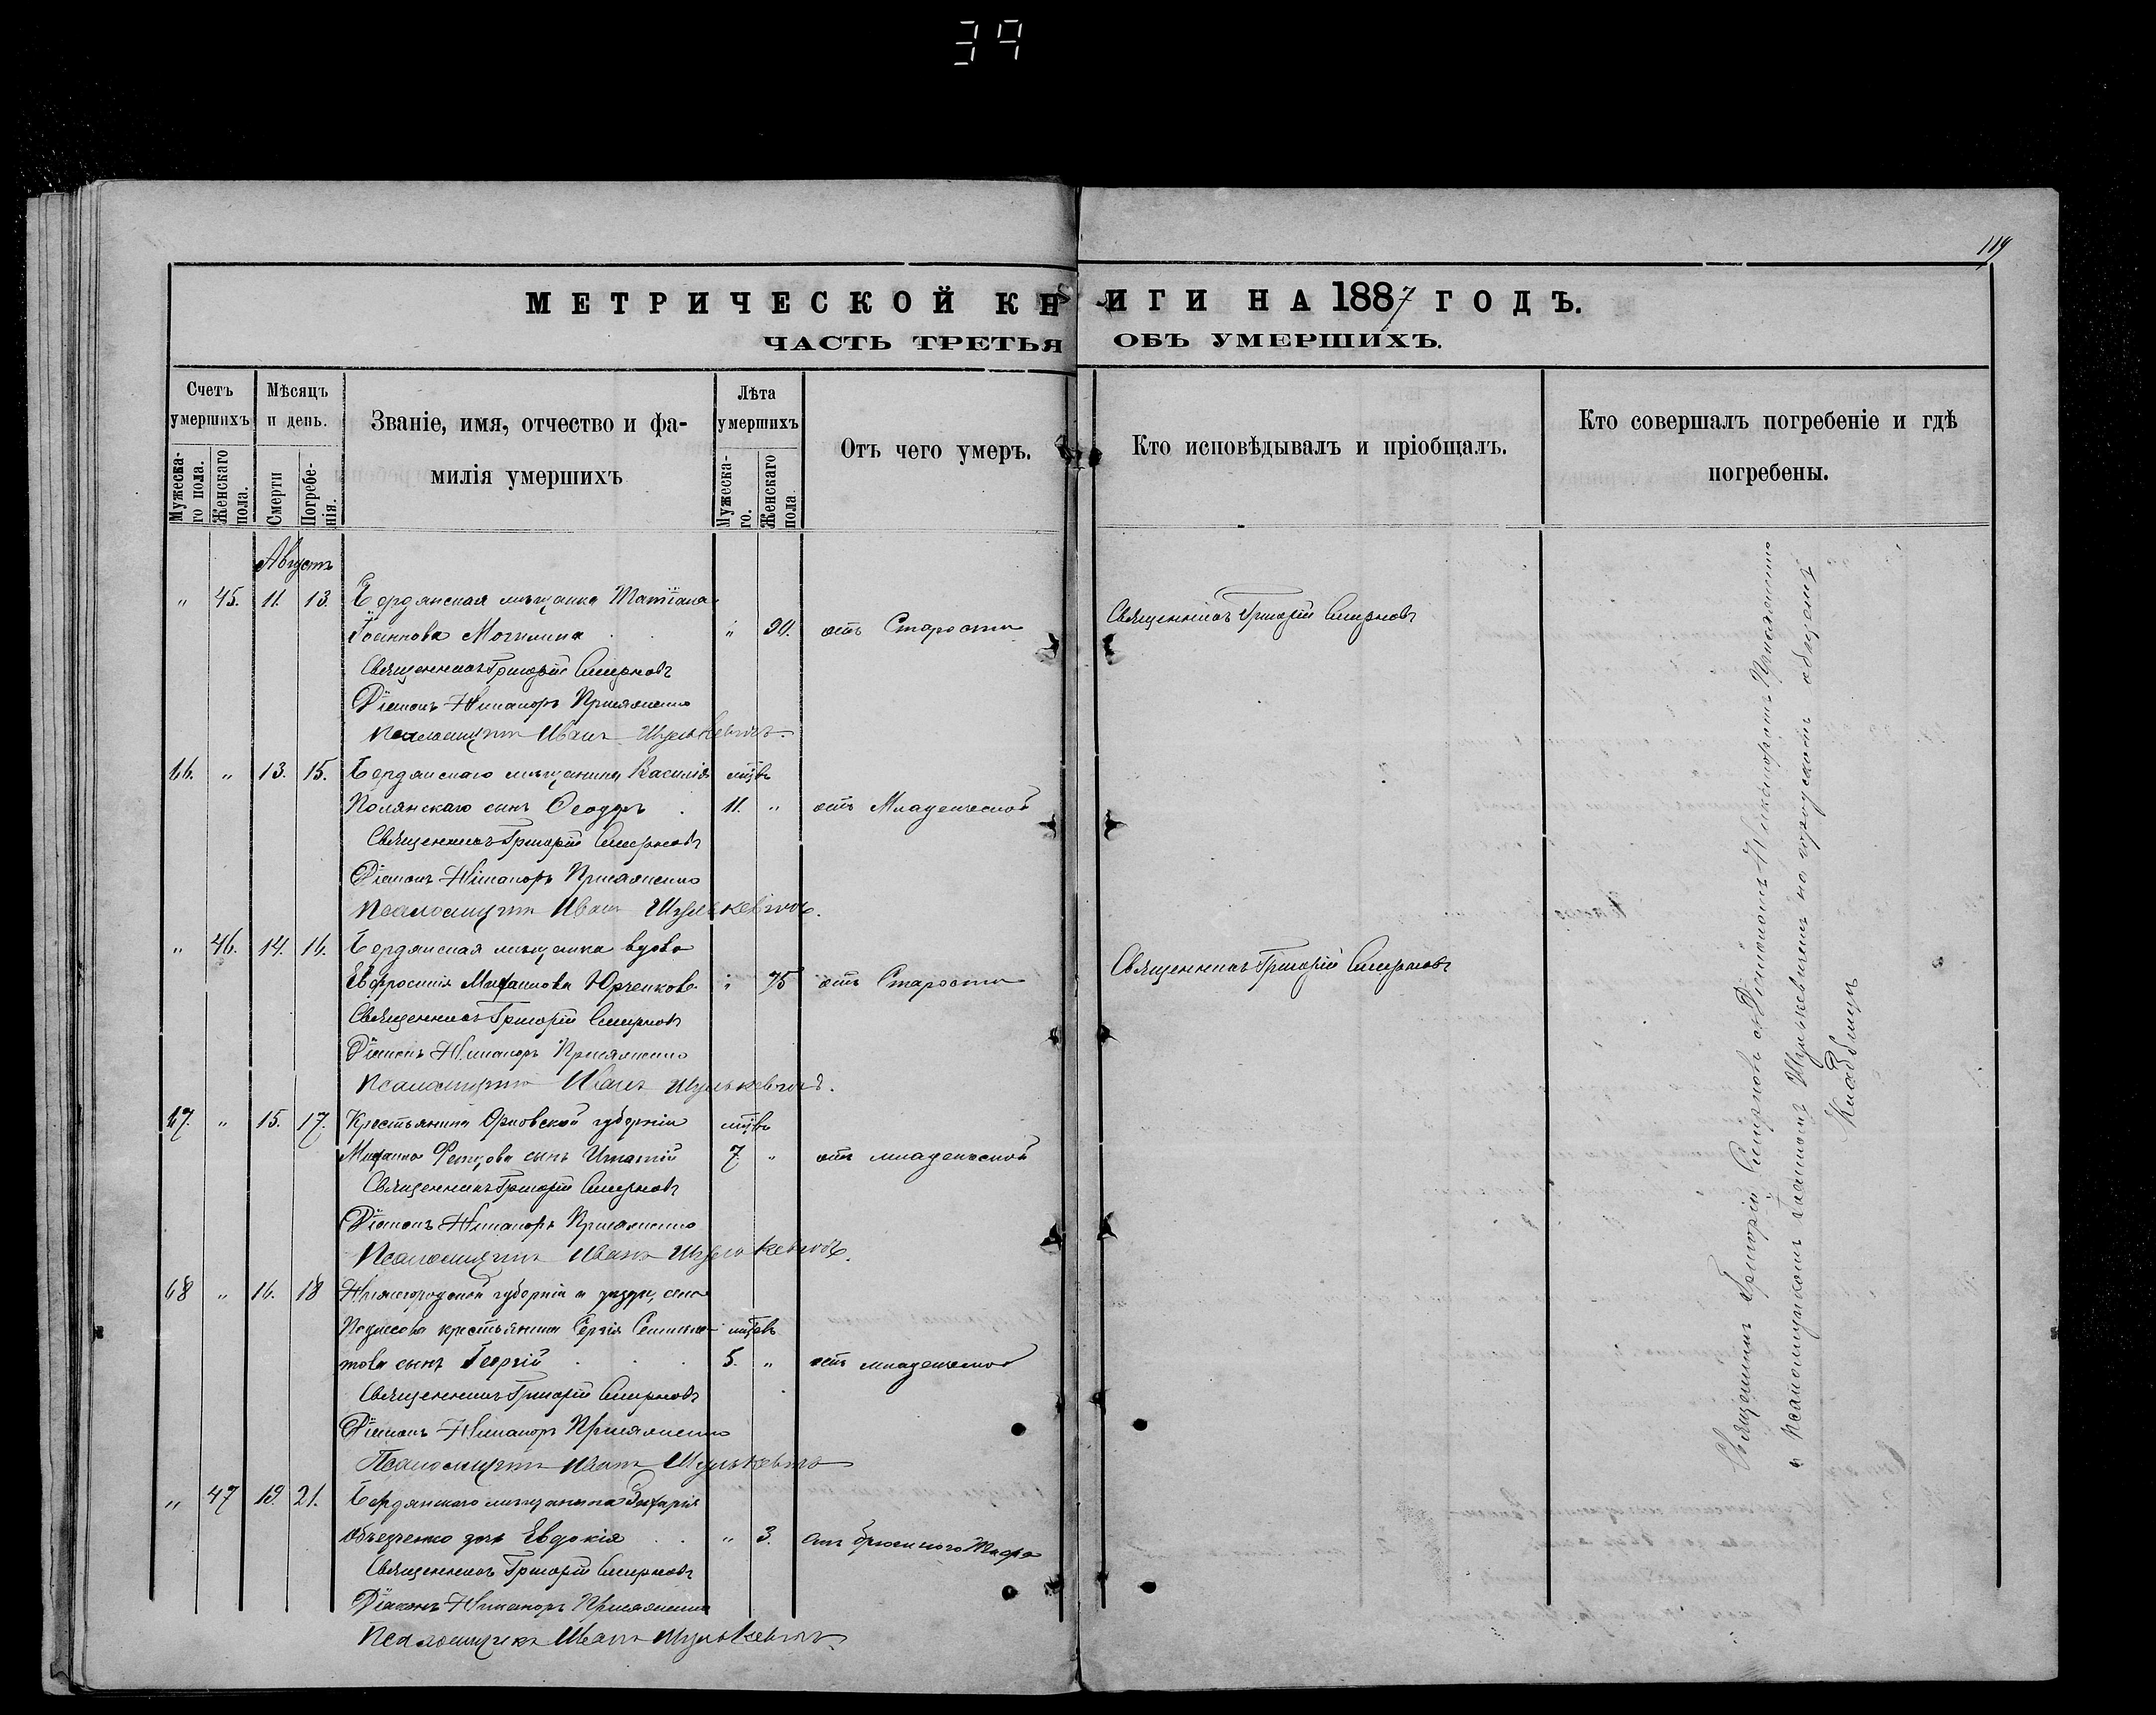 39
119
МЕТРИЧЕСКОЙ КНИГИ НА 1887 ГОДЪ.
ЧАСТЬ ТРЕТЬЯ ОБЪ УМЕРШИХЪ.
Счетъ умершихъ
Мужеска-го пола.
Женскаго пола.
Мѣсяцъ и день.
Смерти
Погребе-нія.
Званіе, имя, отчество и фа-
милія умершихъ
Лѣта умершихъ
Мужеска-го.
Женскаго пола
Отъ чего умеръ.
Кто исповѣдывалъ и пріобщалъ.
Кто совершалъ погребеніе и гдѣ
погребены.
Августъ
" 45. 11. 13. Бердянская мѣщанка Татіана
Іоаннова Могилина " 90. отъ Старости Священникъ Григорій Смирновъ
Священникъ Григорій Смирновъ
Діаконъ Никаноръ Присяженко
Псаломщикъ Иванъ Шулькевичъ.
66. " 13. 15. Бердянскаго мѣщанина Василія мѣцвъ
Полянскаго сынъ Ѳеодоръ 11. " отъ Младенческой
Священникъ Григорій Смирновъ
Діаконъ Никаноръ Присяженко
Псаломщикъ Иванъ Шулькевичъ.
" 46. 14. 16. Бердянская мѣщанка вдова
Евфросинія Михаилова Юрченкова " 75 отъ Старости Священникъ Григорій Смирновъ
Священникъ Григорій Смирновъ
Діаконъ Никаноръ Присяженко
Псаломщикъ Иванъ Шулькевичъ.
67. " 15. 17. Крестьянина Орловской губерніи мѣцвъ
Михаила сынъ Игнатій 7. " отъ младенческой
Священникъ Григорій Смирновъ
Діаконъ Никаноръ Присяженко
Псаломщикъ Иванъ Шулькевичъ.
68 " 16. 18 Нижегородской губерніи и уѣзда, села
крестьянина Сергія
това сынъ Георгій 5. " отъ младенческой
Священникъ Григорій Смирновъ
Діаконъ Никаноръ Присяженко
Псаломщикъ Иванъ Шулькевичъ
" 47 19. 21. Бердянскаго мѣщанина Захарія
дочь Евдокія " 3. отъ брюшного Тифа
Священникъ Григорій Смирновъ
Діаконъ Никаноръ Присяженко
Псаломщикъ Иванъ Шулькевичъ.
Священникъ Григорій Смирновъ съ Діакономъ Никаноромъ Присяженко
и псаломщикомъ Іоанномъ Шулькевичемъ на городскомъ общемъ
Кладбищѣ